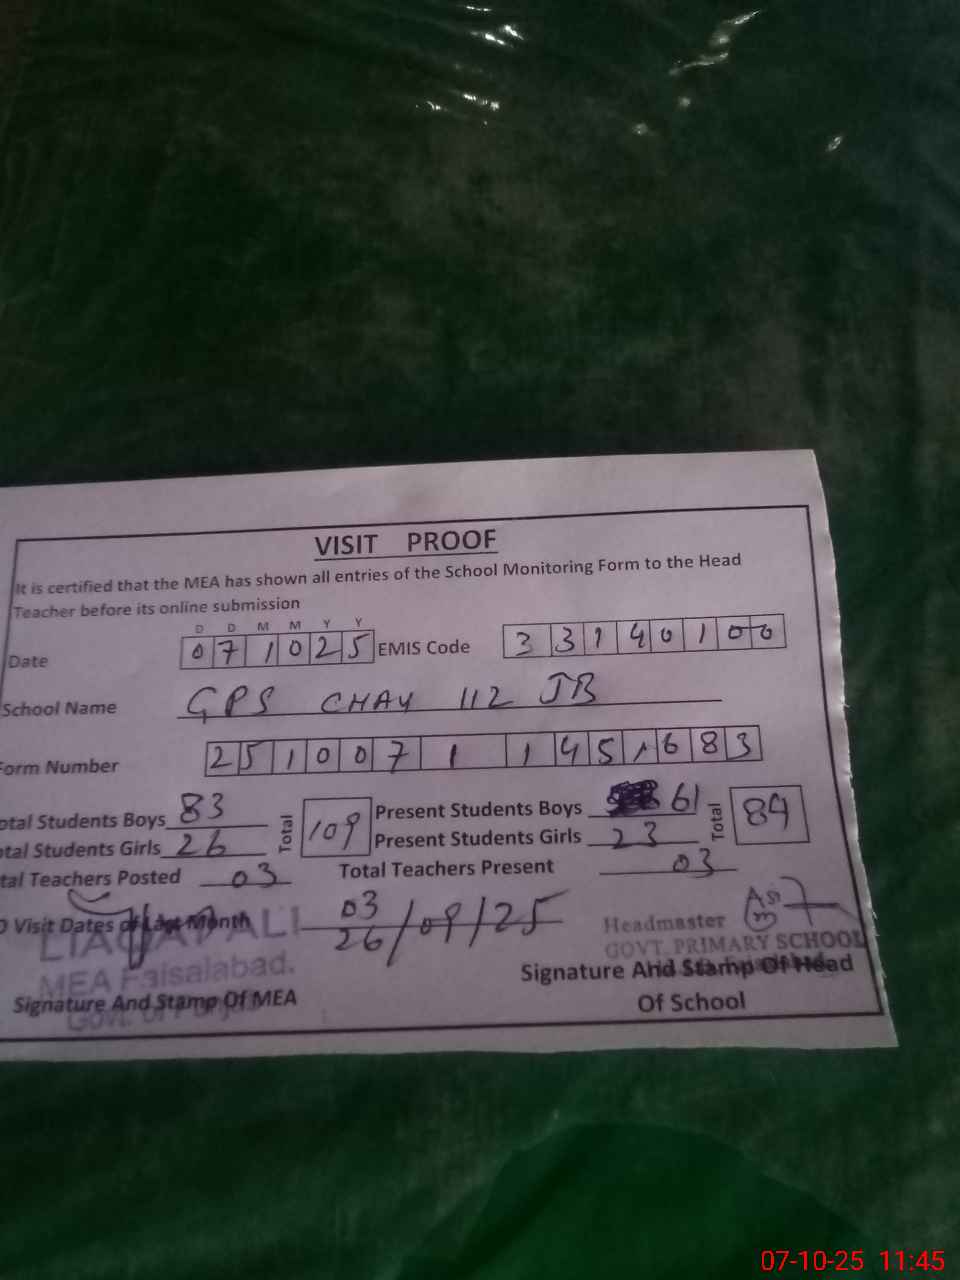 VISIT PROOF
It is certified that the MEA has shown all entries of the School Monitoring Form to the Head
Teacher before its online submission
D D M M Y Y
Date 071025 EMIS Code 33140100
School Name GPS CHAK 112 JB
Form Number 251007 1 145 683
otal Students Boys 83 Total 109 Present Students Boys 61 Total 84
otal Students Girls 26 Present Students Girls 23
tal Teachers Posted 03 Total Teachers Present 03
O Visit Dates of Last Month 03 26/09/25
LIAQAT ALI
MEA Faisalabad.
Headmaster
GOVT. PRIMARY SCHOOL
Signature And Stamp Of MEA
Signature And Stamp Of Head
Of School
07-10-25 11:45